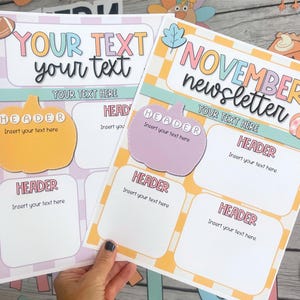 YOUR TEXT
your text
YOUR TEXT HERE
HEADER
Insert your text here
HEADER
Insert text here
HEADER
Insert your text here
NOVEMBER
newsletter
YOUR TEXT HERE
HEADER
Insert text here
HEADER
Insert your text here
HEADER
Insert your text here
HEADER
Insert your text here